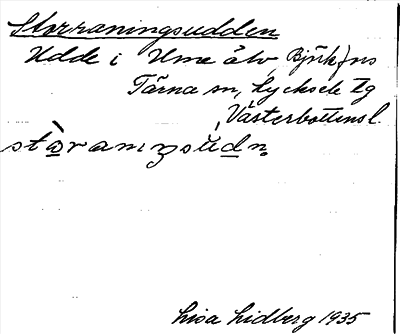 Storraningsudden
Udde i Ume älv, Björkfns
Tärna sn, Lycksele lg
Västerbottens l.
Lisa Lidberg 1935